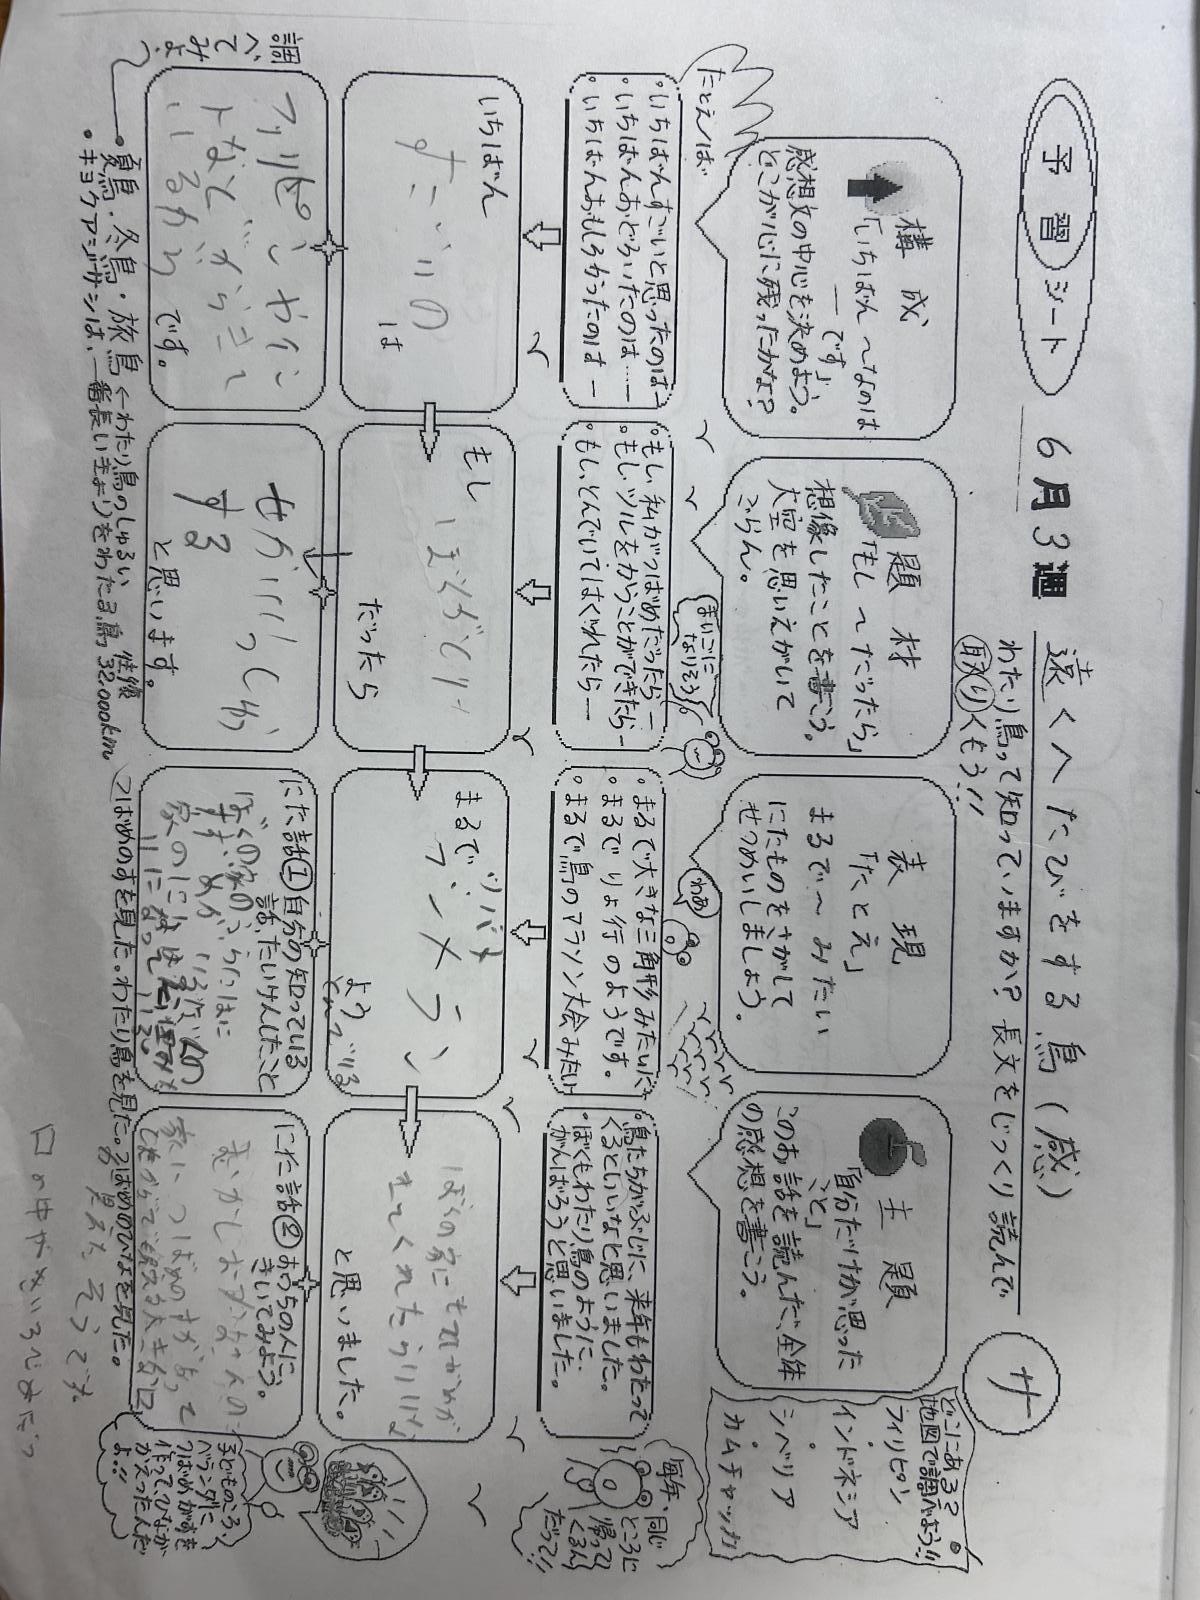 予習シート
6月3週
遠くへたびをする鳥(感)
わたり鳥って知っていますか? 長文をじっくり読んで
取りくもう!!
サ
構成
「いちばん〜なのは
―です」
感想文の中心を決めよう。
どこが心に残ったかな?
題材
「もし〜だったら」
想像したことを書こう。
大空を思いえがいて
ごらん。
表現
「たとえ」
まるで〜みたい
にたものをさがして
せつめいしましょう。
主題
「自分だけが思った
こと」
このお話を読んだ、全体
の感想を書こう。
どこにある?
地図で調べよう!!
フィリピン
インドネシア
シベリア
カムチャッカ
たとえば
・いちばんすごいと思ったのは―
・いちばんおどろいたのは……
・いちばんおもしろかったのは―
まいごに
なりそう
・もし私がつばめだったら―
・もし、ツルをかうことができたら―
・もし、とんでいてはぐれたら―
わあ
・まるで大きな三角形みたいに
・まるでりょ行のようです。
・まるで鳥のマラソン大会みたい
・鳥たちがぶじに、来年もわたって
くるといいなと思いました。
・ぼくもわたり鳥のように、
がんばろうと思いました。
毎年、同じ
ところに
帰って
くるん
だって!!
いちばん
すごいの
は
もし
ぼくがとり
だったら
まるで
ツバメ
ラーメン
よう
とんでいる
ぼくの家にもつばめが
きてくれたらいいな
と思いました。
調べてみよ
フィリピンやイン
ドなどからきて
いるから
です。
せかいいっしゅう
する
と思います。
にた話① 自分の知っている
話、たいけんしたこと
ぼくの家のうらには
家の
にた話② おうちの人に
きいてみよう。
むかしおばあちゃんの
家につばめのすがあって
口
見えたそうです。
口の中がきいろでよだつ
子どものころ、
ベランダに
つばめがすを
作って、ひなが
かえったんだ
よ!!
・夏鳥・冬鳥・旅鳥 ←わたり鳥のしゅるい
・キョクアジサシは、一番長いきょりをわたる鳥 往復32,000km
つばめのすを見た。わたり鳥を見た。つばめのひなを見た。